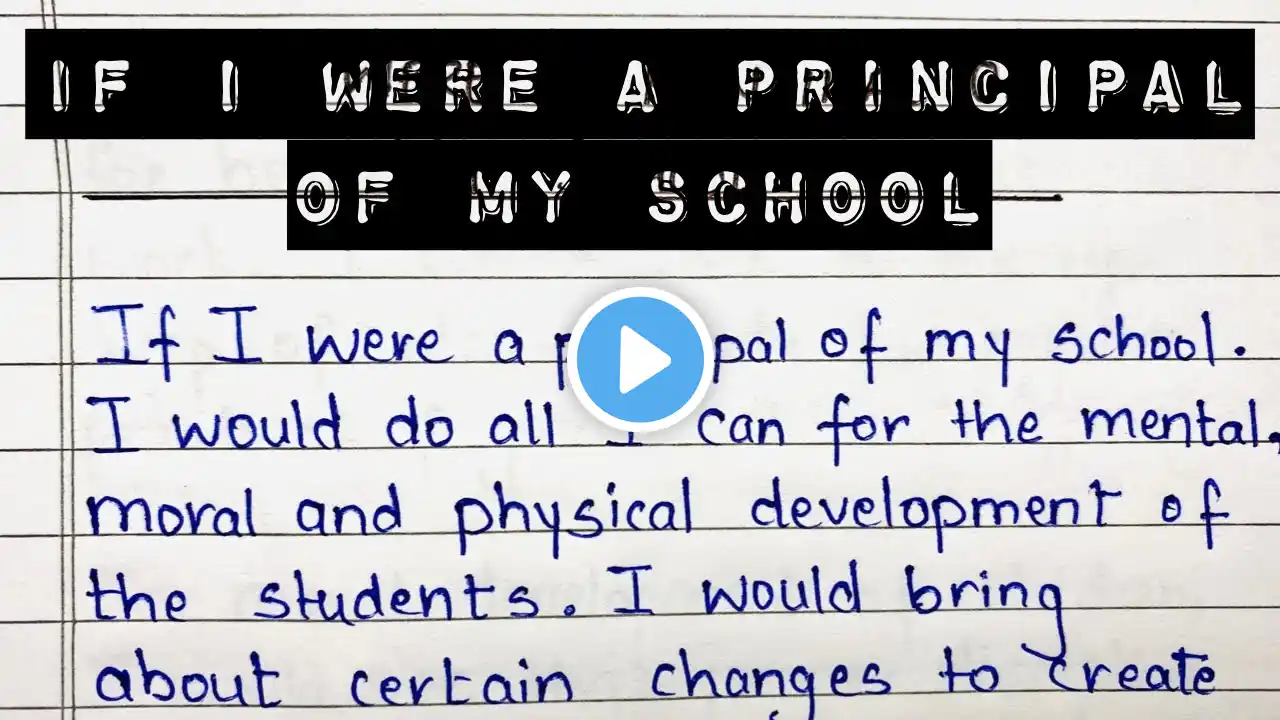 IF I WERE A PRINCIPAL
OF MY SCHOOL
If I were a pal of my school.
I would do all I can for the mental,
moral and physical development of
the students. I would bring
about certain changes to create